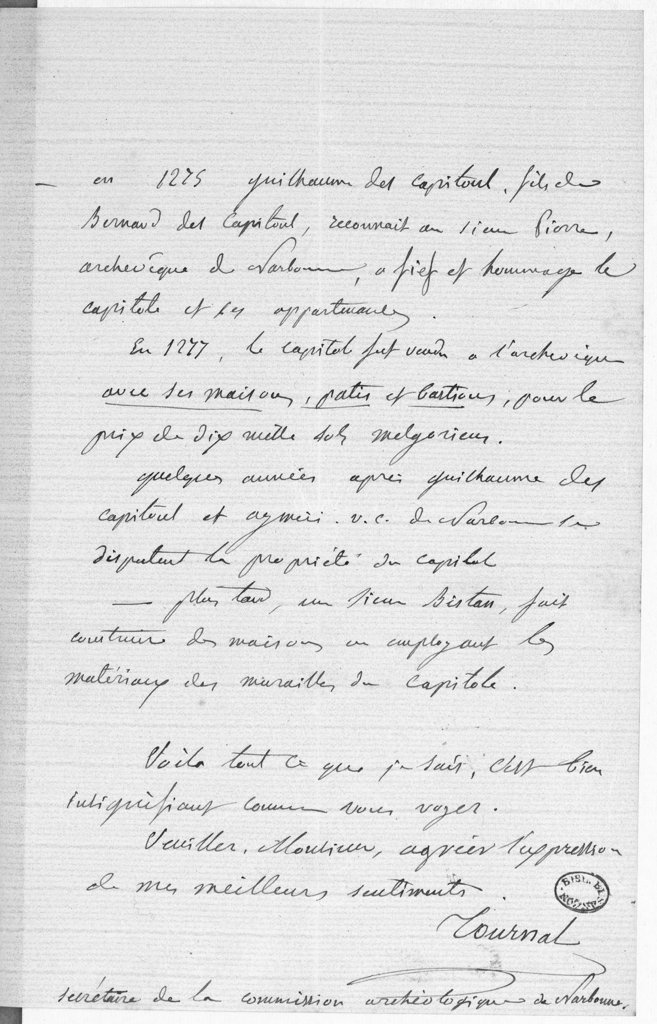 — en 1275 guilhaume des capitoul, fils de
Bernard des Capitoul, reconnait au sieur Pierre,
archevêque de Narbonne, a fief et hommage le
capitole et ses appartenances.
En 1277, le capitole fut vendu a l'archevêque
avec ses maisons, patis et bastions, pour le
prix de dix mille sols melgoriens.
quelques années après guilhaume des
capitoul et aymeri. v. c. de Narbonne se
disputent la propriété du capitole
— plus tard, un sieur Bistan, fait
construire des maisons en employant les
matériaux des murailles du capitole.
Voila tout ce que je sais, c'est bien
insignifiant comme vous voyez.
Veuillez, Monsieur, agréer l'expression
de mes meilleurs sentiments.
Tournal
secrétaire de la commission archéologique de Narbonne.